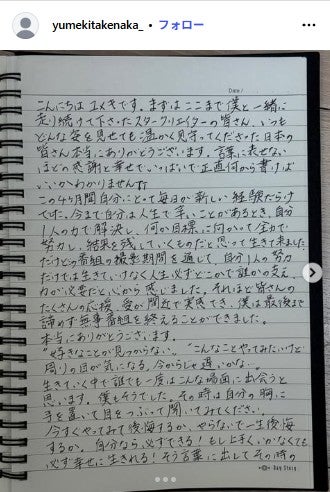 yumekitakenaka_ • フォロー
Date / /
こんにちは ユメキです。まずはここまで僕と一緒に
走り続けて下さったスタークリエイターの皆さん、いつも
どんな姿を見せても温かく見守ってくださった日本の
皆さん本当にありがとうございます。言葉に表せない
ほどの感謝と幸せでいっぱいで正直何から書けば
いいかわかりませんㅠㅠ
この4ヶ月間自分にとって毎日が新しい経験だらけ
でした。今まで自分は人生で辛いことがあるとき、自分
1人の力で解決し、何か目標に向かって全力で
努力し、結果を残していくものだと思って生きて来ました。
だけどこの番組の撮影期間を通して、自分1人の努力
だけでは生きていけなく人生必ずどこかで誰かの支え、
力が必要だと心から感じました。それほど皆さんの
たくさんの応援、愛が間近で実感でき、僕は最後まで
諦めず無事番組を終えることができました。
本当にありがとうございます。
"好きなことが見つからない。""こんなことやってみたいけど
周りの目が気になる、今からじゃ遅いかな。"
生きていく中で誰でも一度はこんな場面に出会うと
思います。僕もそうでした。その時は自分の胸に
手を置いて目をつぶって聞いてみてください。
今すぐやってみて後悔するか、やらないで一生後悔
するか。自分なら、必ずできる!もし上手くいかなくても
必ず幸せに生きれる!そう言葉に出してその時の
Day Story